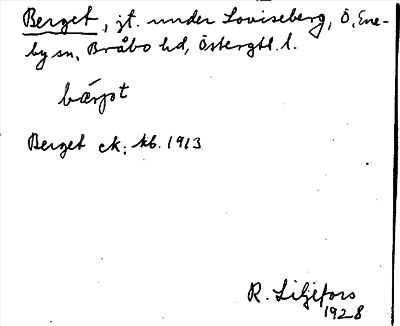 Berget, jt. under Loviseberg, Ö. Ene-
by sn, Bråbo hd, Östergtl. l.
Berget ek. kb. 1913
R. Liljefors
1928